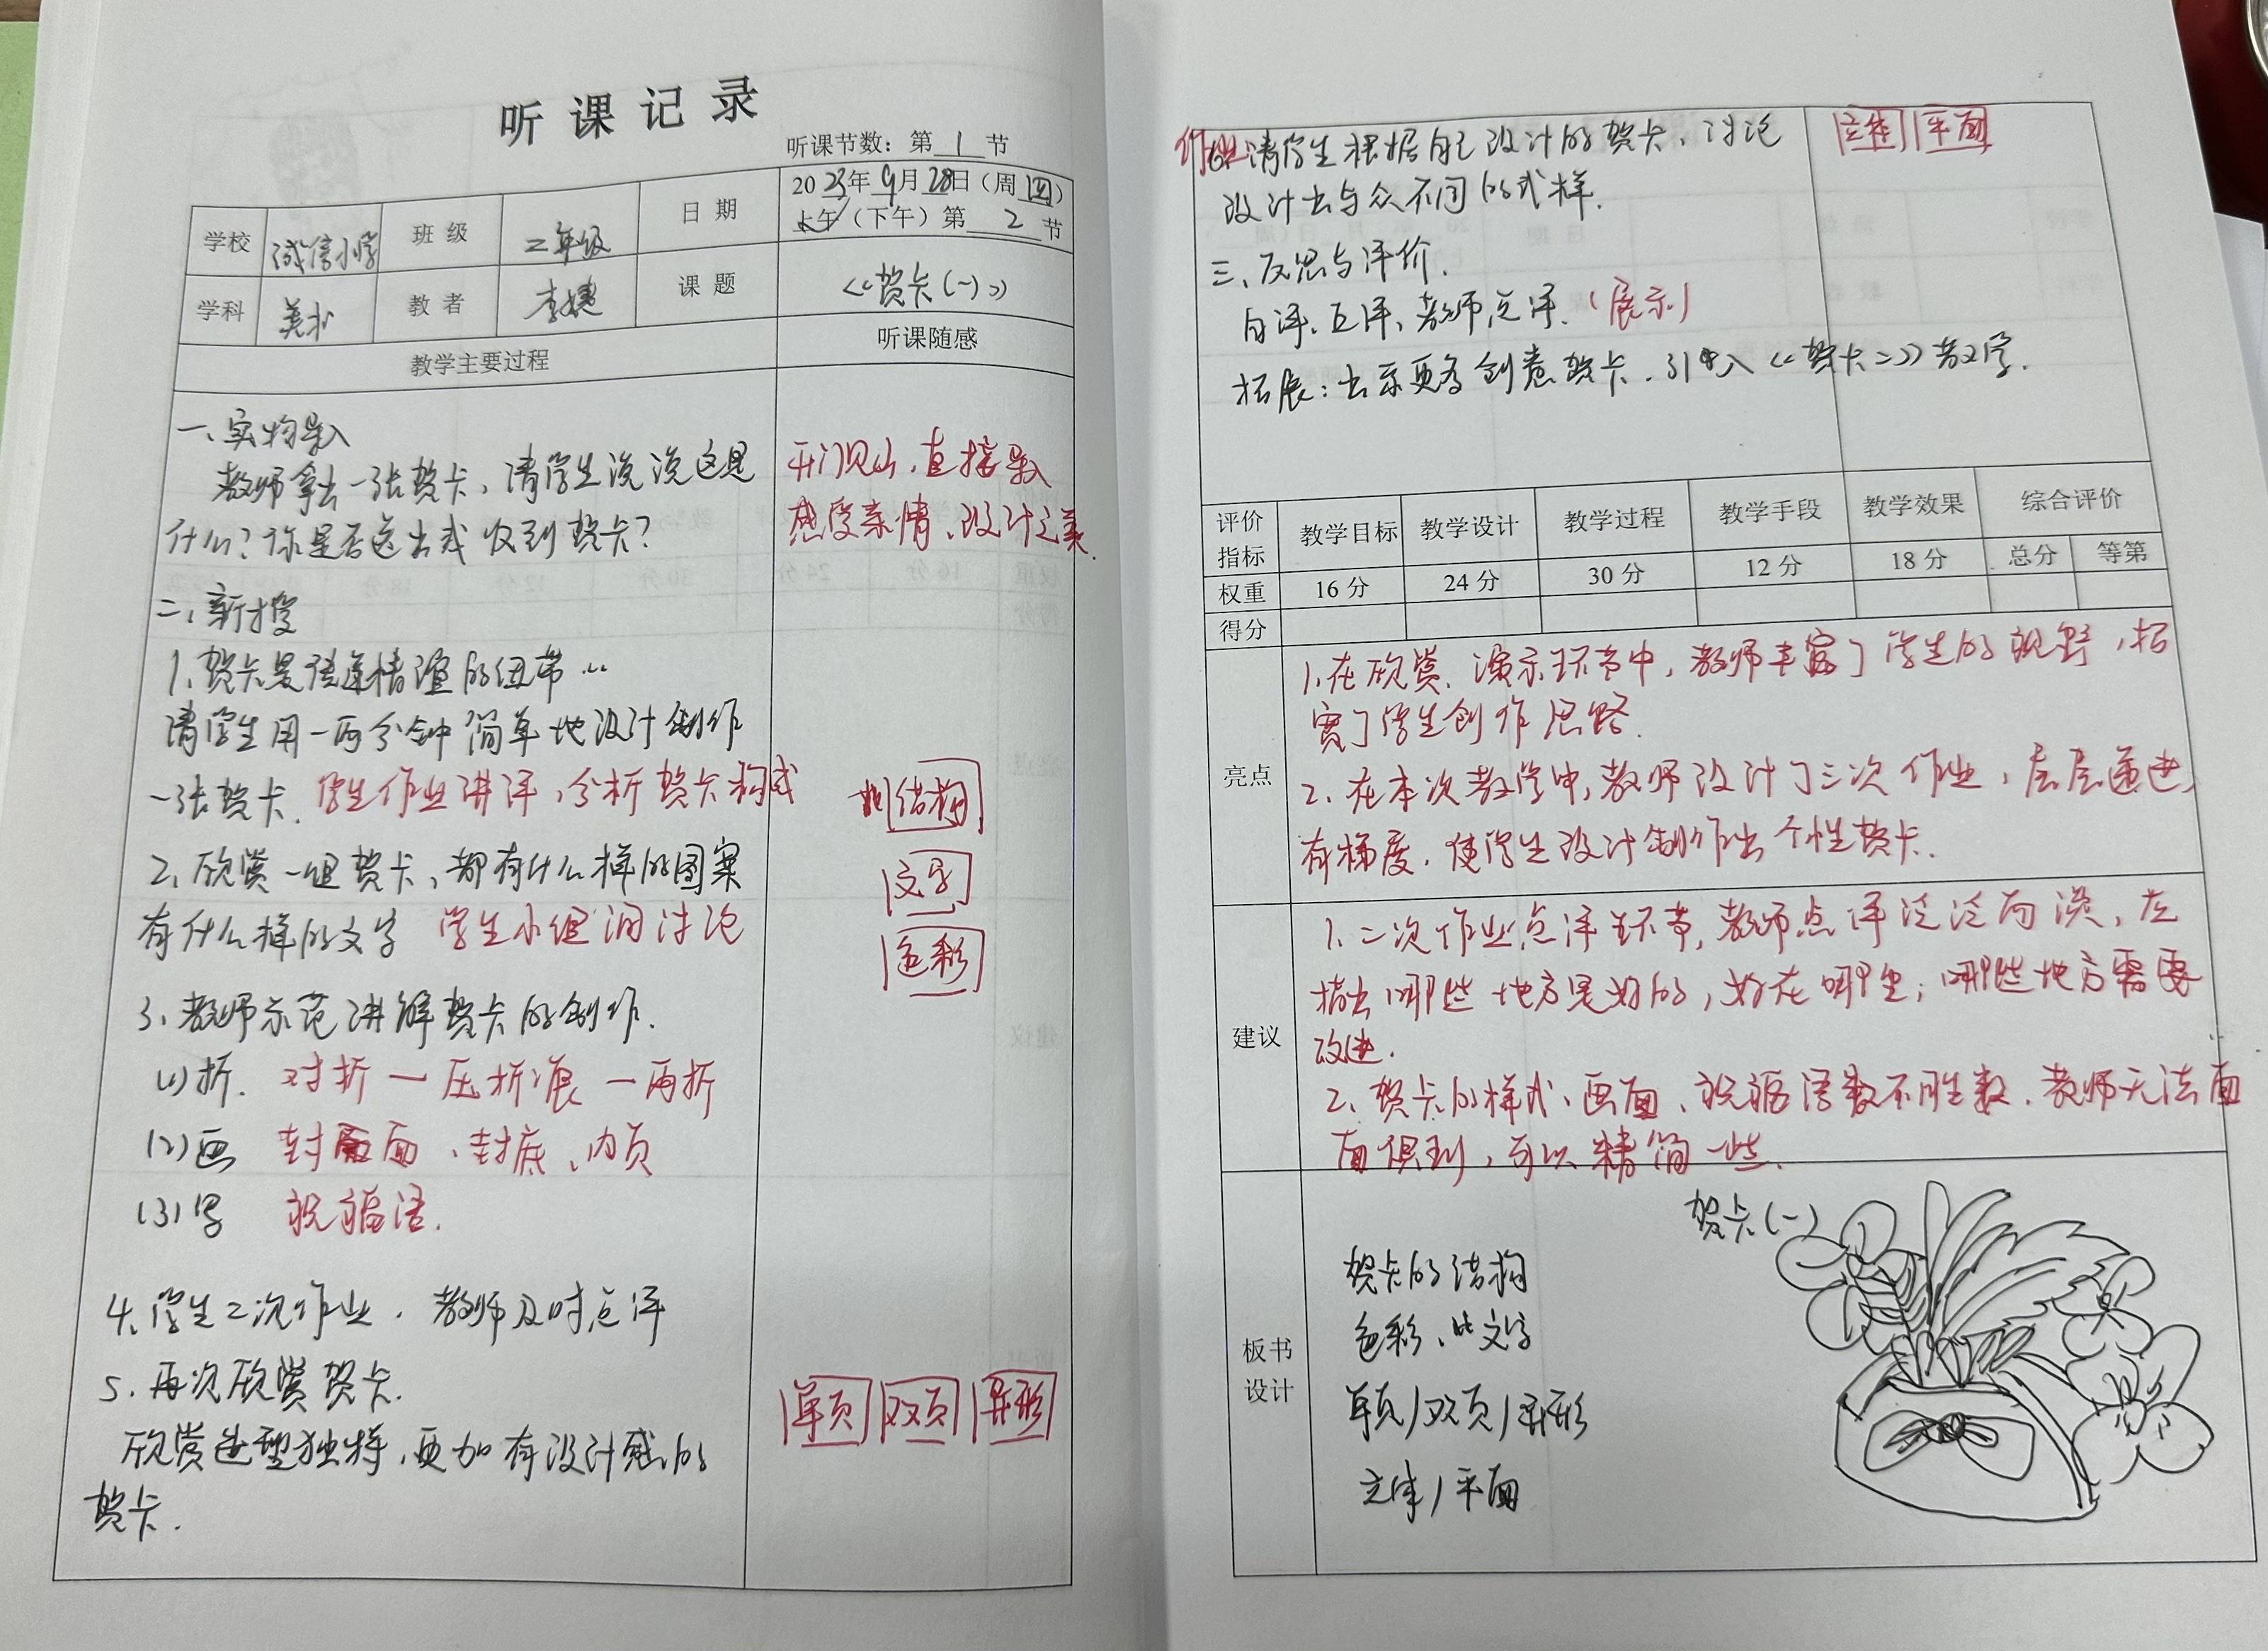 听课记录
听课节数：第 1 节
学校 诚信小学 班级 二年级 日期 2023年9月28日（周四）
上午（下午）第 2 节
学科 美术 教者 李婕 课题 《贺卡(一)》
教学主要过程 听课随感
一、实物导入
教师拿出一张贺卡，请学生说说这是
什么？你是否送出或收到贺卡？
开门见山，直接导入
感受亲情、设计之美.
二、新授
1、贺卡是传递情谊的纽带…
请学生用一两分钟简单地设计制作
一张贺卡. 学生作业讲评，分析贺卡构成
结构
2、欣赏一组贺卡，都有什么样的图案
文字
有什么样的文字 学生小组间讨论
色彩
3、教师示范讲解贺卡的制作.
(1)折. 对折—压折痕—再折
(2)画 封面、封底、内页
(3)写 祝福语.
4、学生二次作业. 教师及时点评
5、再次欣赏贺卡.
单页 双页 异形
欣赏造型独特，更加有设计感的
贺卡.
作业 请学生根据自己设计的贺卡，讨论
立体 平面
设计出与众不同的式样.
三、反思与评价.
自评、互评、教师点评.（展示）
拓展：出示更多创意贺卡.引入《贺卡二》教学.
评价指标 教学目标 教学设计 教学过程 教学手段 教学效果 综合评价
权重 16 分 24 分 30 分 12 分 18 分 总分 等第
得分
亮点
1、在欣赏、演示环节中，教师丰富了学生的视野，拓
宽了学生创作思路.
2、在本次教学中，教师设计了三次作业，层层递进，
有梯度，使学生设计制作出个性贺卡.
建议
1、二次作业点评环节，教师点评泛泛而谈，应
指出哪些地方是好的，好在哪里；哪些地方需要
改进.
2、贺卡的样式、画面、祝福语数不胜数，教师无法面
面俱到，可以精简一些.
板书设计
贺卡(一)
贺卡的结构
色彩、文字
单页/双页/异形
立体/平面